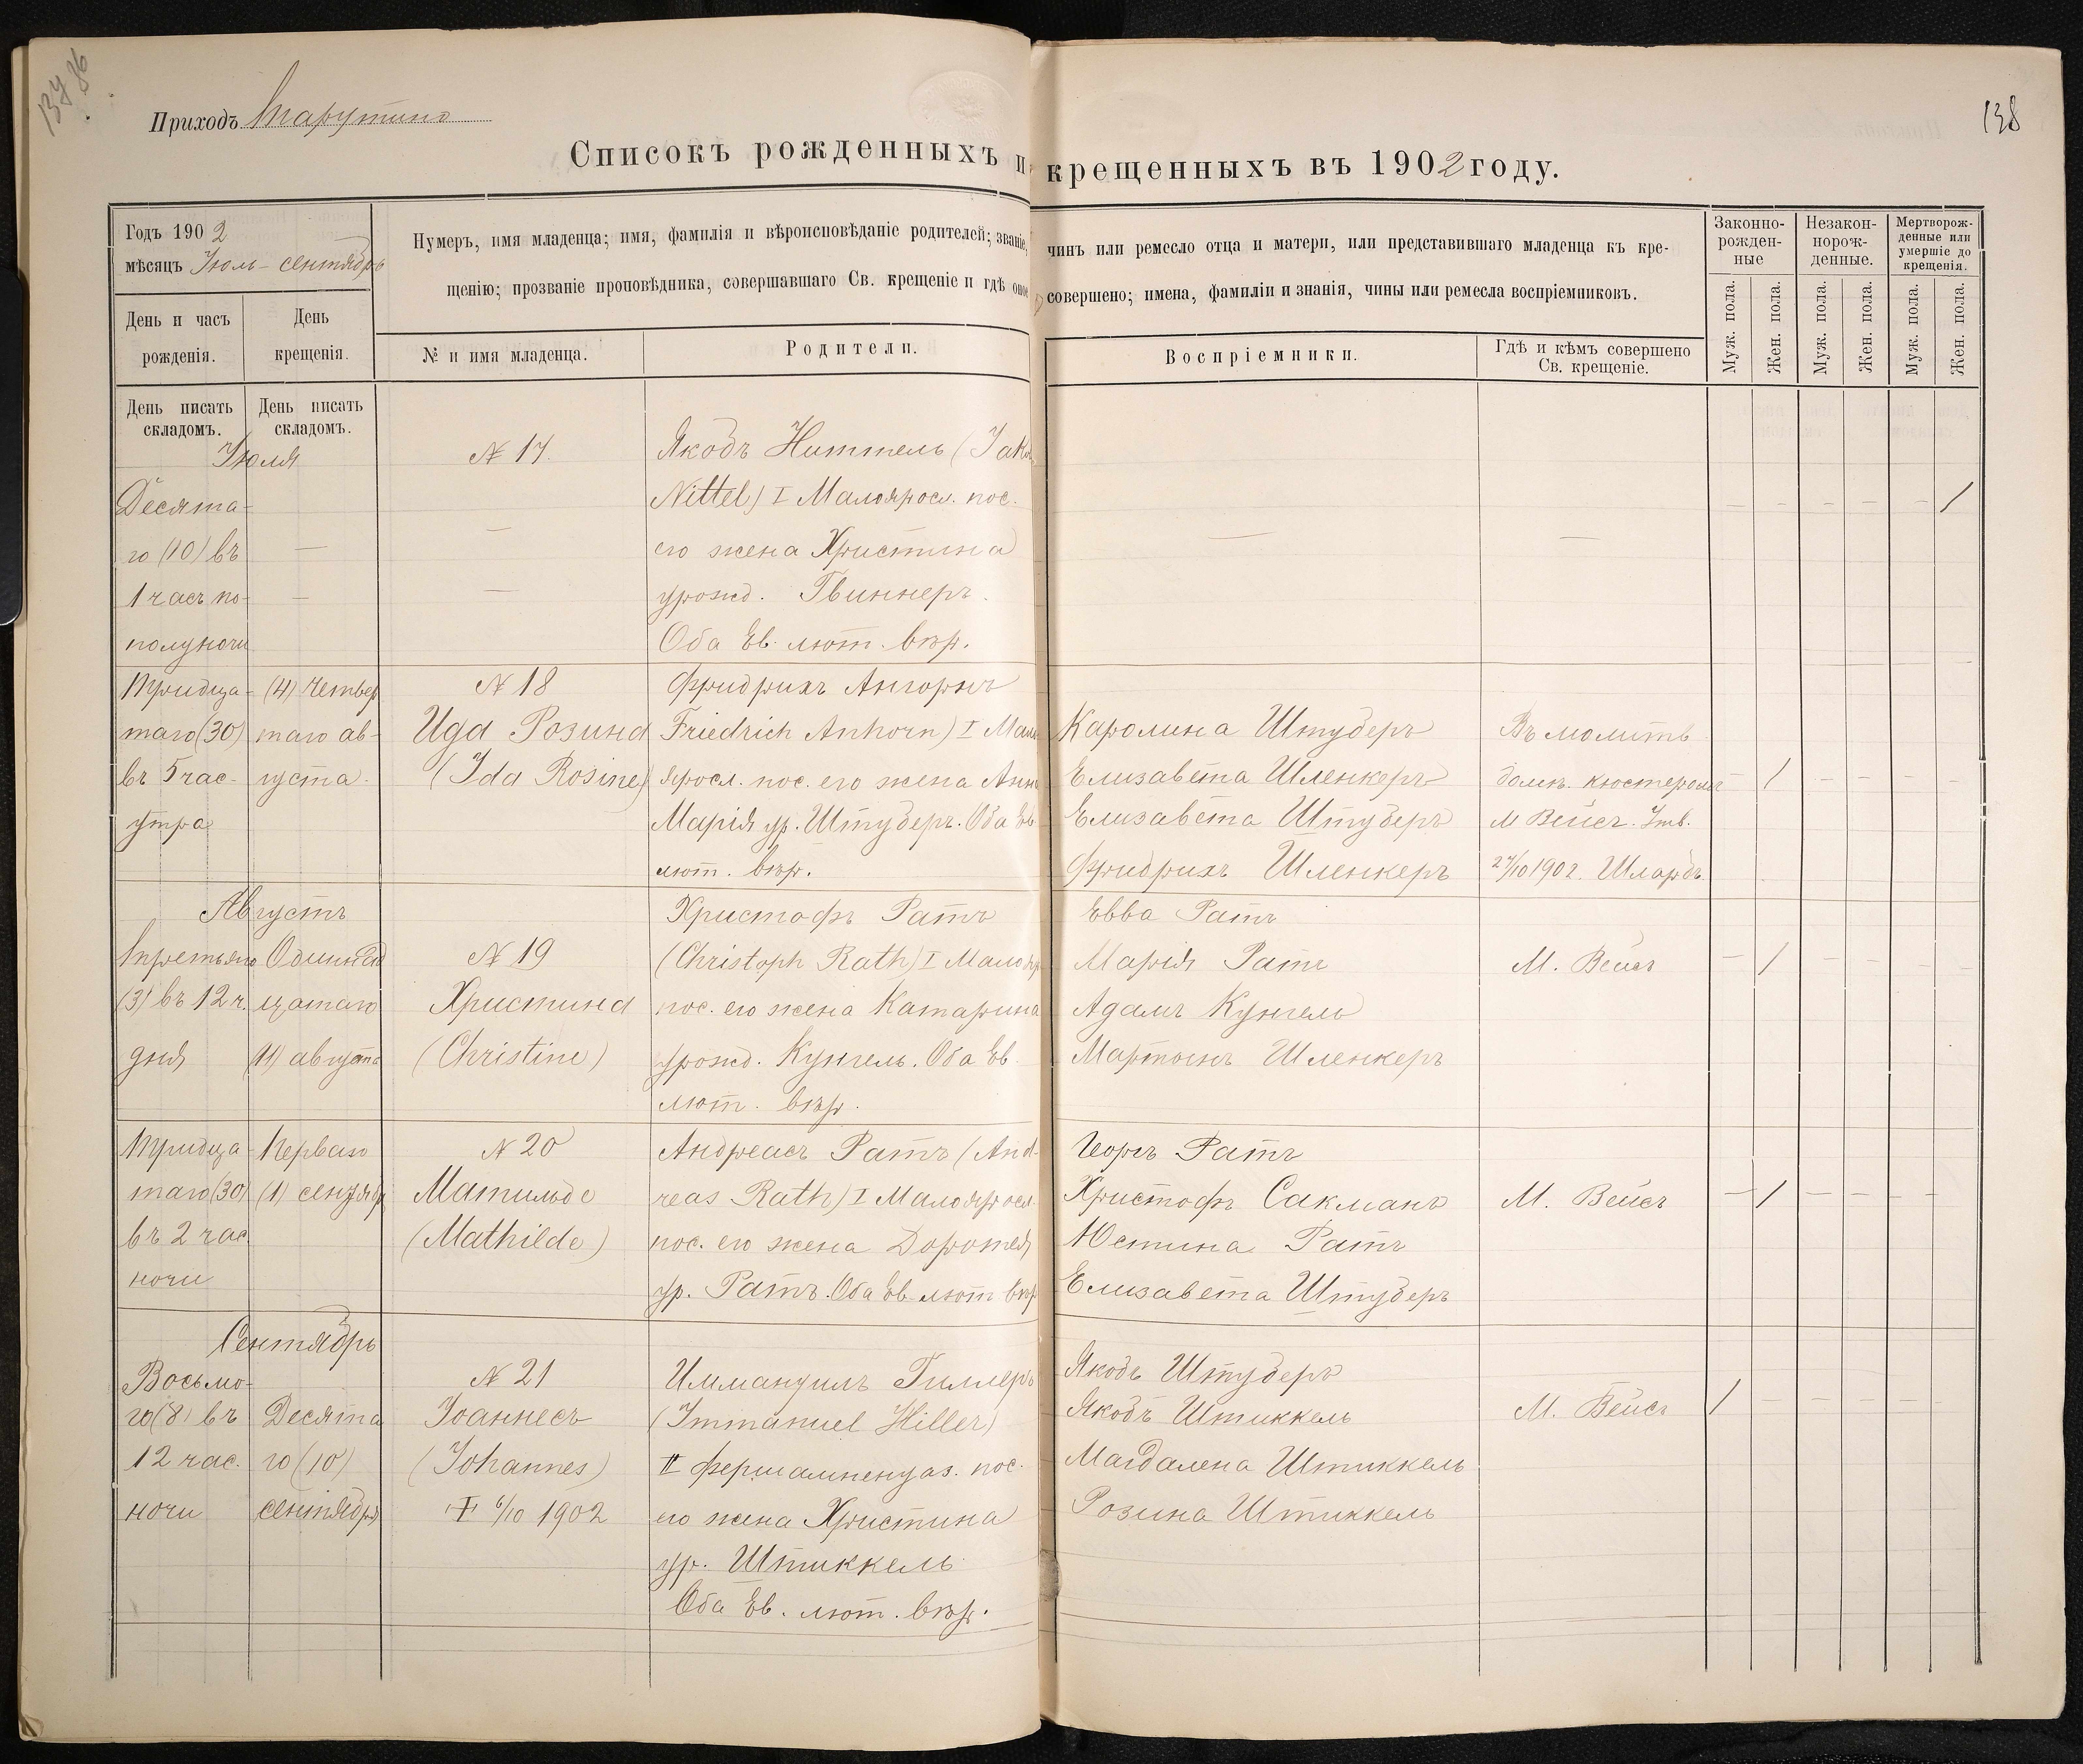 Приходъ Тарутино
138
Списокъ рожденныхъ и крещенныхъ въ 1902 году.
Годъ 1902
мѣсяцъ Іюль - сентябрь
День и часъ рожденія.
День крещенія.
Нумеръ, имя младенца; имя, фамилія и вѣроисповѣданіе родителей; званіе, чинъ или ремесло отца и матери, или представившаго младенца къ кре-
щенію; прозваніе проповѣдника, совершавшаго Св. крещеніе и гдѣ оное совершено; имена, фамиліи и знанія, чины или ремесла воспріемниковъ.
№ и имя младенца.
Родители.
Воспріемники.
Гдѣ и кѣмъ совершено
Св. крещеніе.
Законно-
рожден-
ные
Незакон-
норож-
денные.
Мертворож-
денные или
умершіе до
крещенія.
Муж. пола.
Жен. пола.
Муж. пола.
Жен. пола.
Муж. пола.
Жен. пола.
День писать
складомъ.
День писать
складомъ.
Іюля
Десята-
го (10) въ
1 часъ по-
полуночи
№ 17.
Якобъ Ниттель (Jakob
Nittel) I Малояросл. пос.
его жена Христина
урожд. Гвиннеръ.
Оба Ев. лют. вѣр.
Тридца-
таго (30)
въ 5 час.
утра
(4) Четвер
таго ав-
густа
№ 18
Ида Розина
(Ida Rosine)
Фридрихъ Ангорнъ
Friedrich Anhorn) I Мало
яросл. пос. его жена Анна
Марія ур. Штуберъ. Оба Ев
лют. вѣр.
Каролина Штуберъ
Елизавета Шленкеръ
Елизавета Штуберъ
Фридрихъ Шленкеръ
Въ молитв.
домѣ. кюстеромъ
М Вейсъ. Утв.
27/10 1902. Шлардъ.
Августъ
Третьяго
(3) въ 12 ч.
дня
Одиннад
цатаго
(11) августа
№ 19
Христина
(Christine)
Христофъ Ратъ
(Christoph Rath) I Малояр
пос. его жена Катарина
урожд. Кунгель. Оба Ев.
лют. вѣр.
Евва Ратъ
Марія Ратъ
Адамъ Кунгель
Мартинъ Шленкеръ
М. Вейсъ
Тридца
таго (30)
въ 2 час.
ночи
Перваго
(1) сентября
№ 20
Матильде
(Mathilde)
Андреасъ Ратъ (And-
reas Rath) I Малояросл.
пос. его жена Доротея
ур. Ратъ. Оба Ев. лют вѣр
Георгъ Ратъ
Христофъ Сакманъ
Юстина Ратъ
Елизавета Штуберъ
М. Вейсъ
Сентябрь
Восьмо-
го (8) въ
12 час.
ночи
Десята
го (10)
сентября
№ 21
Іоаннесъ
(Johannes)
† 6/10 1902
Иммануилъ Гиллеръ
(Immanuel Hiller)
II Фершампенуаз. пос.
его жена Христина
ур. Штиккель
Оба Ев. лют. вѣр.
Якобъ Штуберъ
Якобъ Штиккель
Магдалена Штиккель
Розина Штиккель
М. Вейсъ